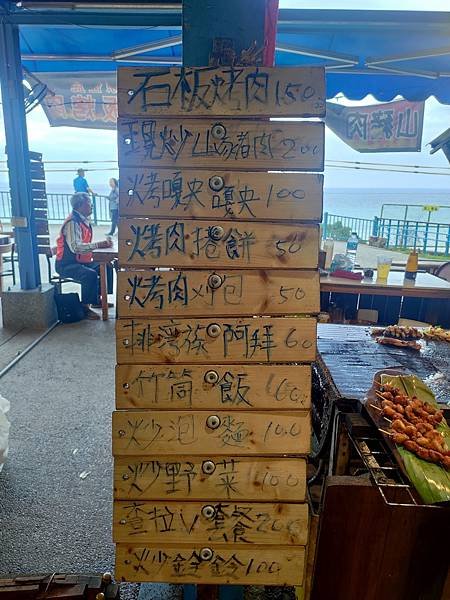 石板烤肉150元
現炒山豬肉200
烤嘎央嘎央100
烤肉捲餅50
烤肉刈包50
排灣族阿拜60
竹筒飯100元
炒泡麵100
炒野菜100
查拉V套餐200
炒鈴鈴100
山豬肉